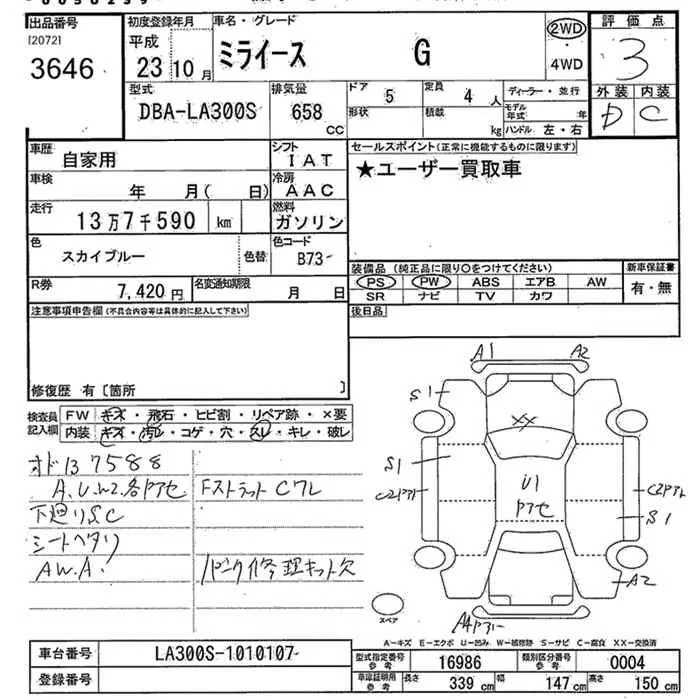 出品番号
[2072]
3646
初度登録年月
平成
23 10 月
車名・グレード
ミライース G
2WD
・4WD
評価点
3
外装 内装
D C
型式
DBA-LA300S
排気量
658 CC
ドア 5
定員 4 人
形状
積載 kg
ディーラー・並行
モデル年式 年
ハンドル 左・右
車歴
自家用
シフト
IAT
車検
年 月( 日)
冷房
AAC
走行
13万7千590 km
燃料
ガソリン
色
スカイブルー
色替
色コード
B73
R券
7,420 円
名変通知期限
月 日
セールスポイント(正常に機能するものに限ります)
★ユーザー買取車
装備品(純正品に限り○をつけてください)
PS PW ABS エアB AW
SR ナビ TV カワ
新車保証書
有・無
後日品
注意事項申告欄(不具合内容等は具体的に記入して下さい)
修復歴 有〔箇所 〕
検査員記入欄
FW キズ・飛石・ヒビ割・リペア跡・×要
内装 キズ・汚レ・コゲ・穴・スレ・キレ・破レ
オド137588
A.U.W2.各アセ
Fストラット Cワレ
下廻りS.C
シートヘタリ
A.W.A.
パンク修理キット欠
A1 A2
S1
XX
S1
U1
アセ
S1
A2
スペア
A-キズ E-エクボ U-凹み W-補修跡 S-サビ C-腐食 XX-交換済
車台番号
LA300S-1010107
登録番号
型式指定番号 参考
16986
類別区分番号 参考
0004
車庫証明用 参考
長さ 339 cm
幅 147 cm
高さ 150 cm